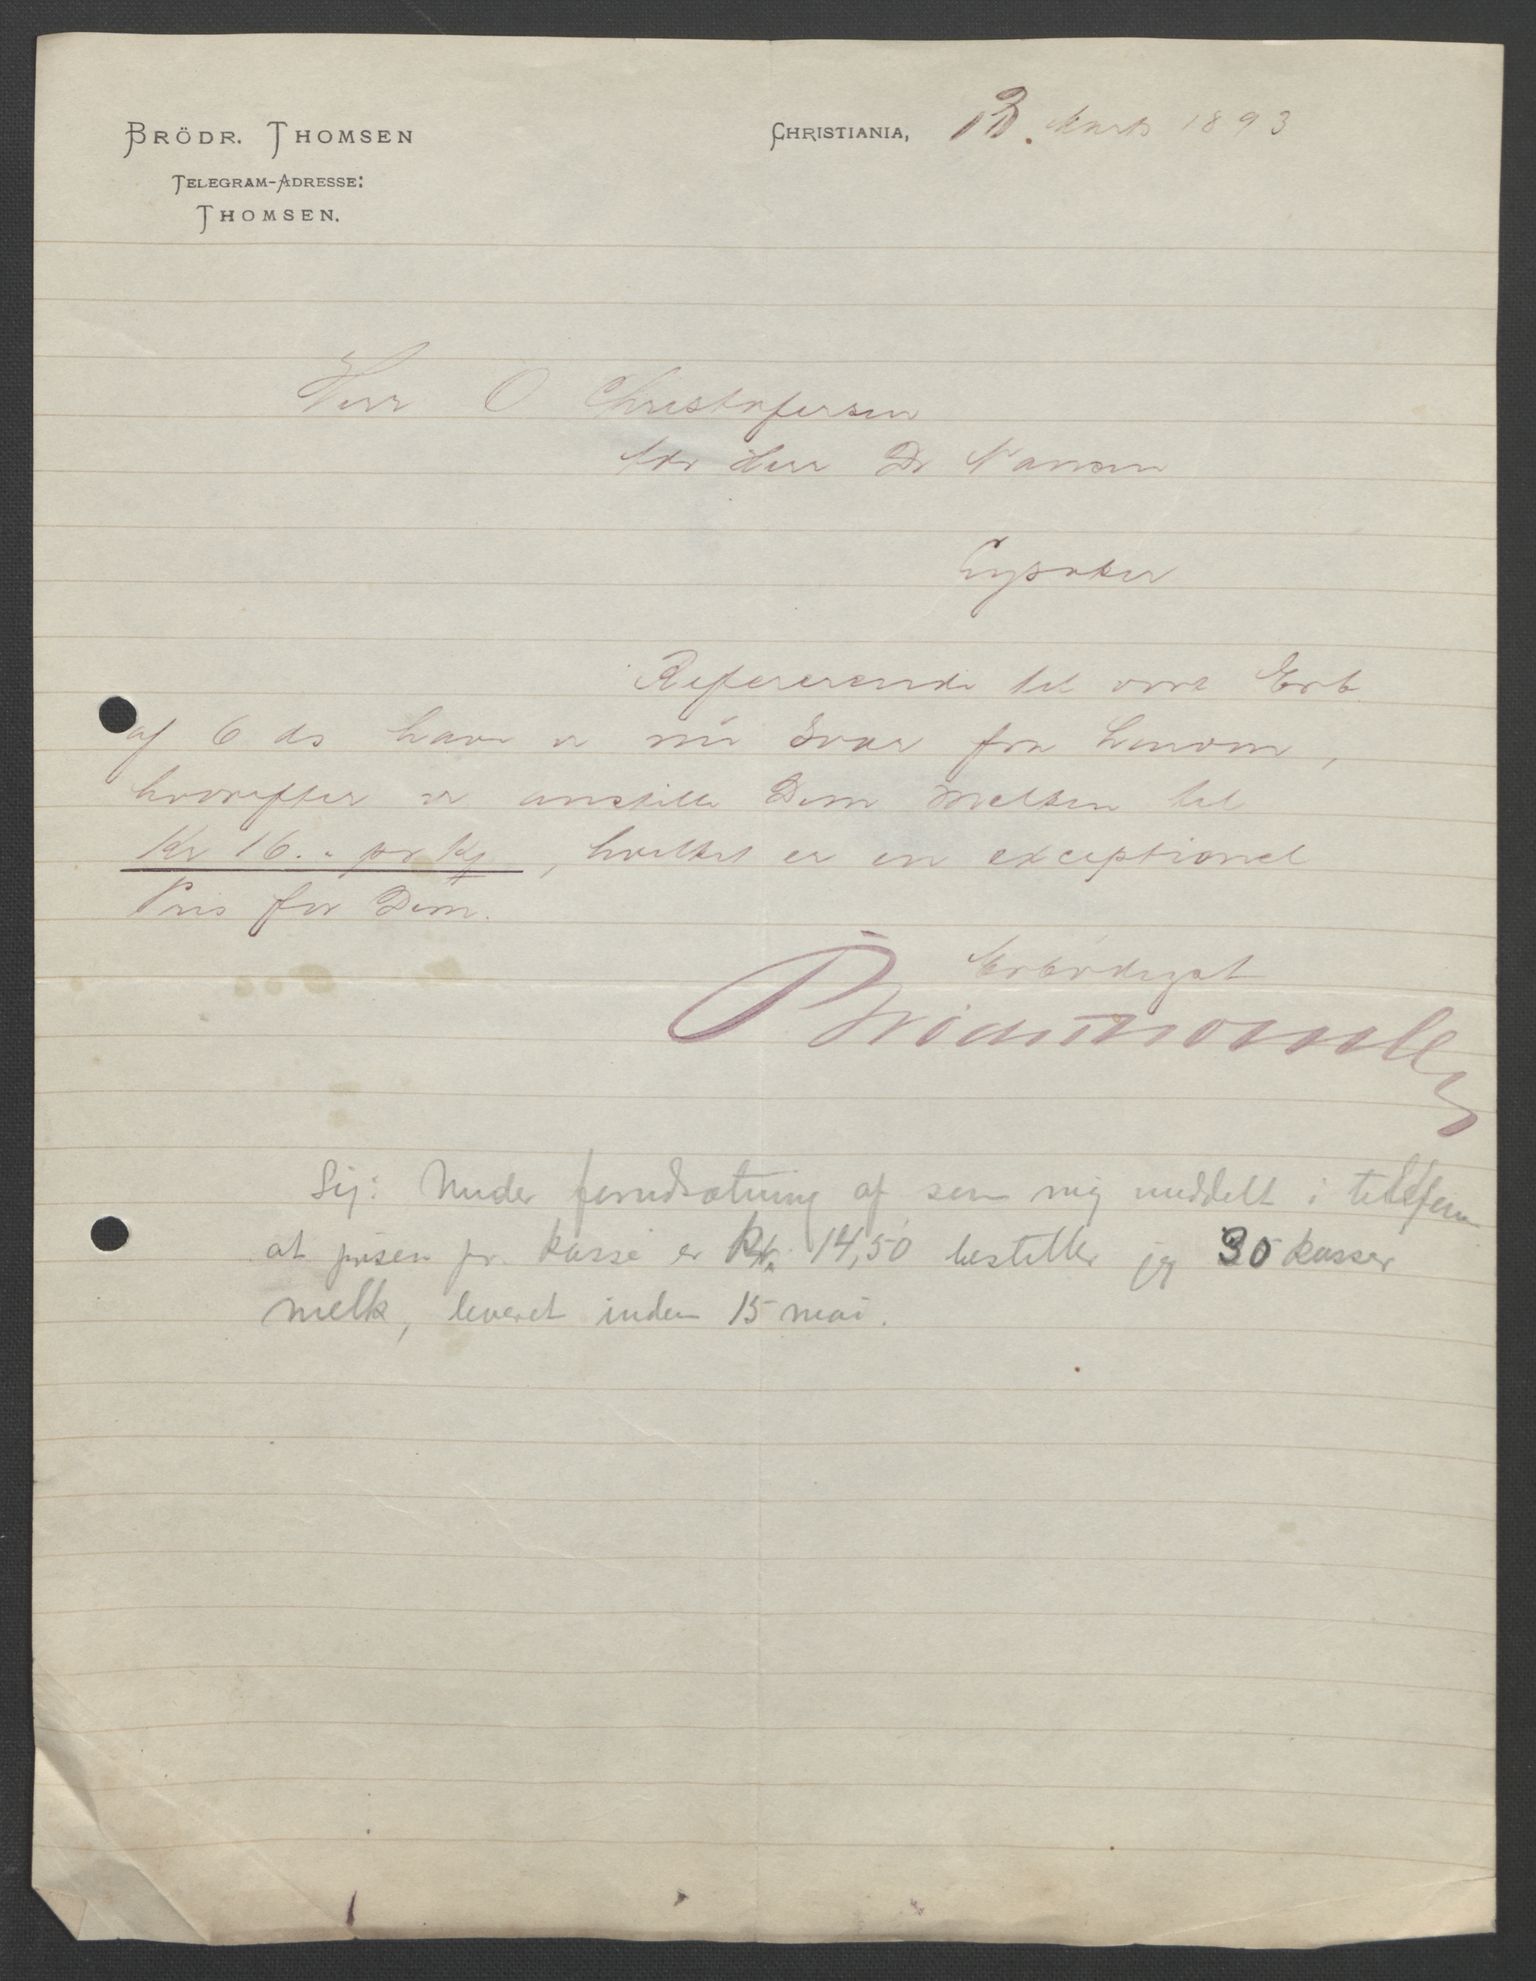 BRÖDR. THOMSEN
TELEGRAM-ADRESSE:
THOMSEN.
CHRISTIANIA, 13. Marts 1893
Herr O Christofersen
Adr Herr Dr Nansen
Lysaker
Refererende til vort Erb
af 6 ds have vi nu Svar fra
hvorefter vi anstille Dem Melken til
Kr 16.- pr Ks, hvilket er en exceptionel
Pris for Dem.
Erbödigst
Brödr Thomsen
Sv: Under forudsætning af som mig meddelt i telefon
at prisen pr. kasse er kr. 14,50 bestiller jeg 30 kasser
melk, leveret inden 15 mai.